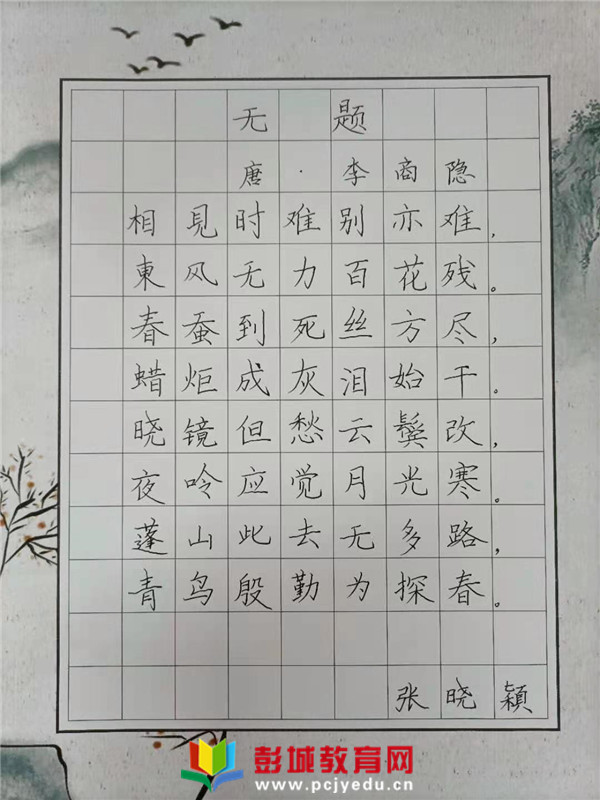 无题
唐·李商隐
相見时难别亦难，
東风无力百花残。
春蚕到死丝方尽，
蜡炬成灰泪始干。
晓镜但愁云鬓改，
夜吟应觉月光寒。
蓬山此去无多路，
青鸟殷勤为探春。
张晓颖
彭城教育网
www.pcjyedu.cn